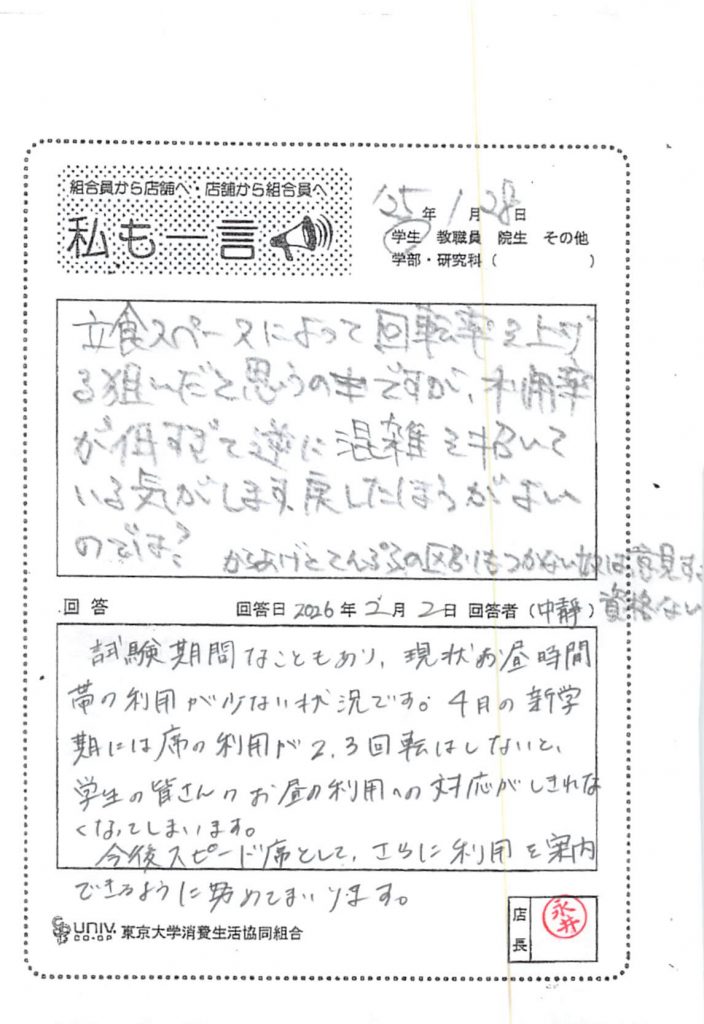 組合員から店舗へ・店舗から組合員へ
私も一言
'25年1月28日
学生 教職員 院生 その他
学部・研究科( )
立食スペースによって回転率を上げ
る狙いだと思うのですが、利用率
が低すぎて逆に混雑を招いて
いる気がします、戻したほうがよい
のでは?
からあげとてんぷらの区別もつかない奴は意見する
資格ない
回答 回答日2026年2月2日 回答者(中静)
試験期間なこともあり、現状お昼時間
帯の利用が少ない状況です。4月の新学
期には席の利用が2,3回転はしないと、
学生の皆さんのお昼の利用への対応がしきれな
くなってしまいます。
今後スピード席として、さらに利用を案内
できるように努めてまいります。
UNIV. CO-OP 東京大学消費生活協同組合
店長 永井